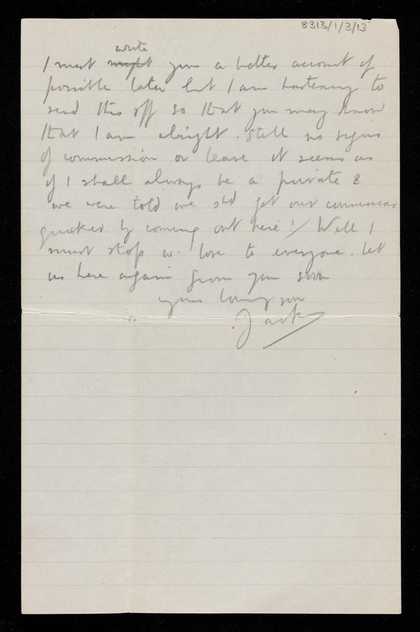 8313/1/3/13
write
I must might give a better account if
possible later but I am hastening to
send this off so that you may know
that I am alright. Still no signs
of commission or leave it seems as
if I shall always be a private &
we were told we shd get our commissions
quicker by coming out here! Well I
must stop w. love to everyone. Let
us hear again from you soon
yours loving son
Jack